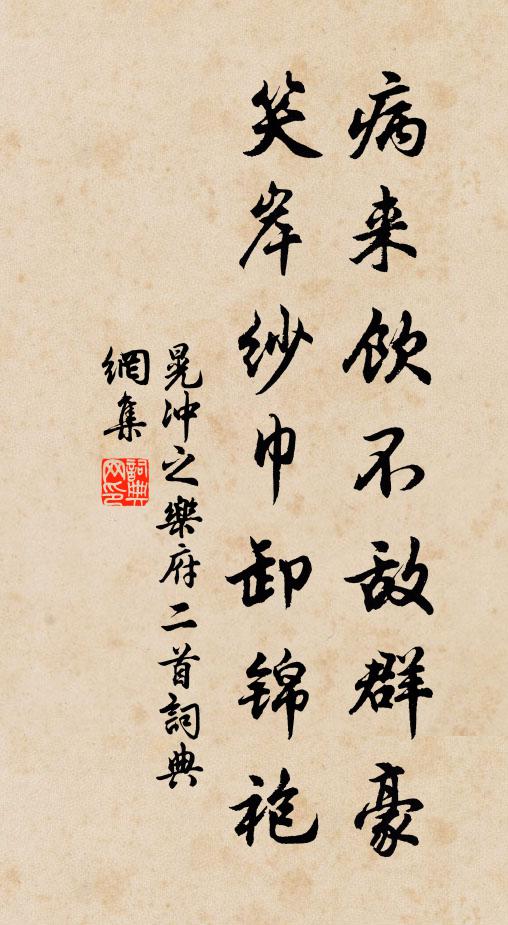 病来饮不敌群豪
笑岸纱巾卸锦袍
晁冲之樂府二首詞典
網集
詞典網印